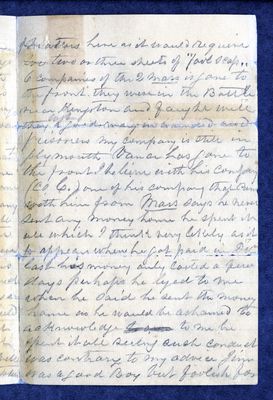 here as it would require
two or three sheets of "fools cap"
6 companies of the 2 Mass is gone to
Front they were in the Battle
near Kingston and fought well
they lost a good many in wounded and
prisoners My company is still in
Plymouth has gone to
the front I believe with his company
(Co C,) one of his company that came
with him from Mass says he never
sent any money home he spent it
all which I think very likely as it
to appear when he got paid in Dec
last his money only lasted a few
days perhaps he lyed to me
when he said he sent the money
home as he would be ashamed to
acknowledge to me he
spent it all seeing such conduct
was contrary to my advice Jim
was a good Boy but foolish for